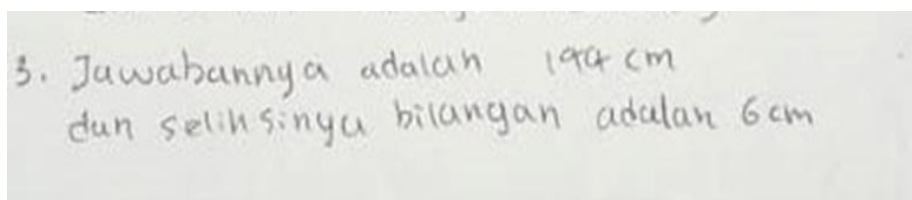 3. Jawabannya adalah 194 cm
dan selihsinya bilangan adalah 6 cm